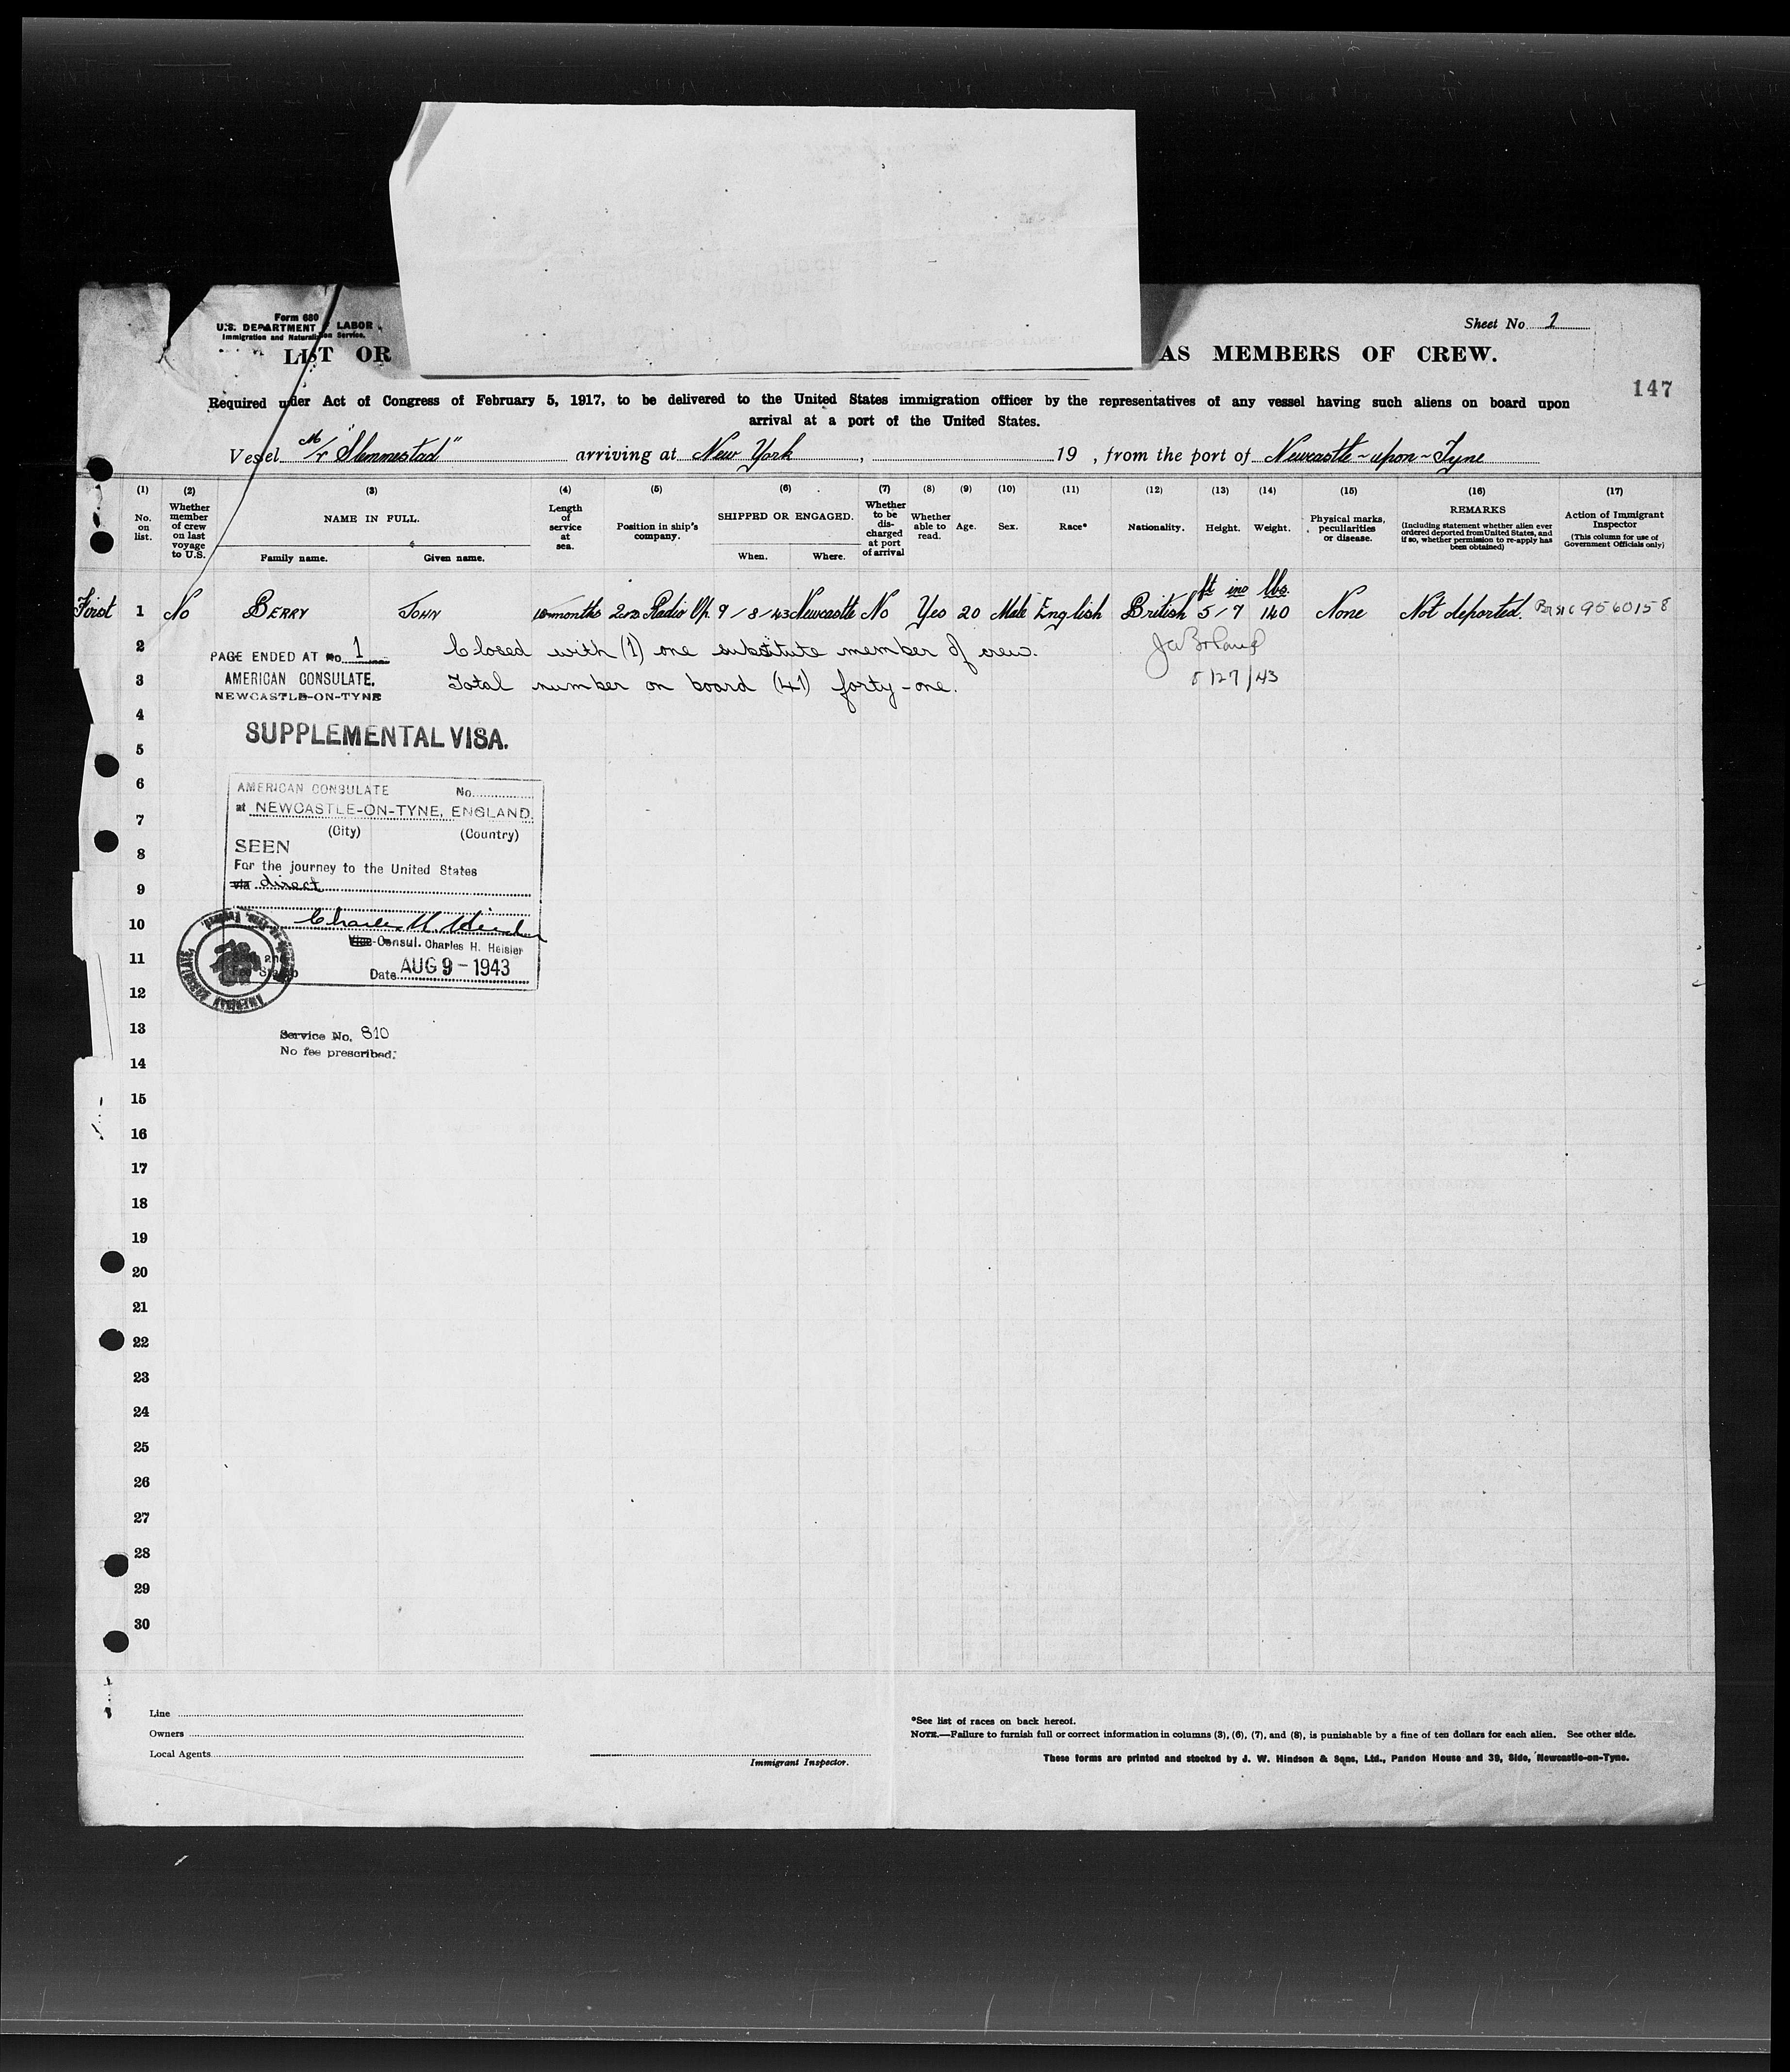 Form 680
U.S. DEPARTMENT OF LABOR
Immigration and Naturalization Service.
Sheet No. 1
LIST OR AS MEMBERS OF CREW.
147
Required under Act of Congress of February 5, 1917, to be delivered to the United States immigration officer by the representatives of any vessel having such aliens on board upon
arrival at a port of the United States.
Vessel M/T "Slemmestad" arriving at New York , 19 , from the port of Newcastle-upon-Tyne
(1) (2) (3) (4) (5) (6) (7) (8) (9) (10) (11) (12) (13) (14) (15) (16) (17)
No. on list.
Whether member of crew on last voyage to U.S.
NAME IN FULL.
Family name. Given name.
Length of service at sea.
Position in ship's company.
SHIPPED OR ENGAGED.
When. Where.
Whether to be discharged at port of arrival
Whether able to read.
Age.
Sex.
Race*
Nationality.
Height.
Weight.
Physical marks, peculiarities or disease.
REMARKS
(Including statement whether alien ever ordered deported from United States, and if so, whether permission to re-apply has been obtained)
Action of Immigrant Inspector
(This column for use of Government Officials only)
ft ins lbs.
First 1 No BERRY JOHN months 2nd Radio Op. 9/8/43 Newcastle No Yes 20 Male English British 5/7 140 None Not deported. 9560158
2 Closed with (1) one substitute member of crew.
PAGE ENDED AT No. 1
3 Total number on board (41) forty-one. 8/27/43
AMERICAN CONSULATE,
NEWCASTLE-ON-TYNE
4
SUPPLEMENTAL VISA.
5
6
AMERICAN CONSULATE No.
at NEWCASTLE-ON-TYNE, ENGLAND.
7
(City) (Country)
8
SEEN
For the journey to the United States
9
via direct
10
Charles H. Heisler
Vice-Consul. Charles H. Heisler
11
Date AUG 9 - 1943
12
13
Service No. 810
No fee prescribed.
14
15
16
17
18
19
20
21
22
23
24
25
26
27
28
29
30
Line
Owners
Local Agents
Immigrant Inspector.
*See list of races on back hereof.
NOTE.—Failure to furnish full or correct information in columns (3), (6), (7), and (8), is punishable by a fine of ten dollars for each alien. See other side.
These forms are printed and stocked by J. W. Hindson & Sons, Ltd., Pandon House and 39, Side, Newcastle-on-Tyne.